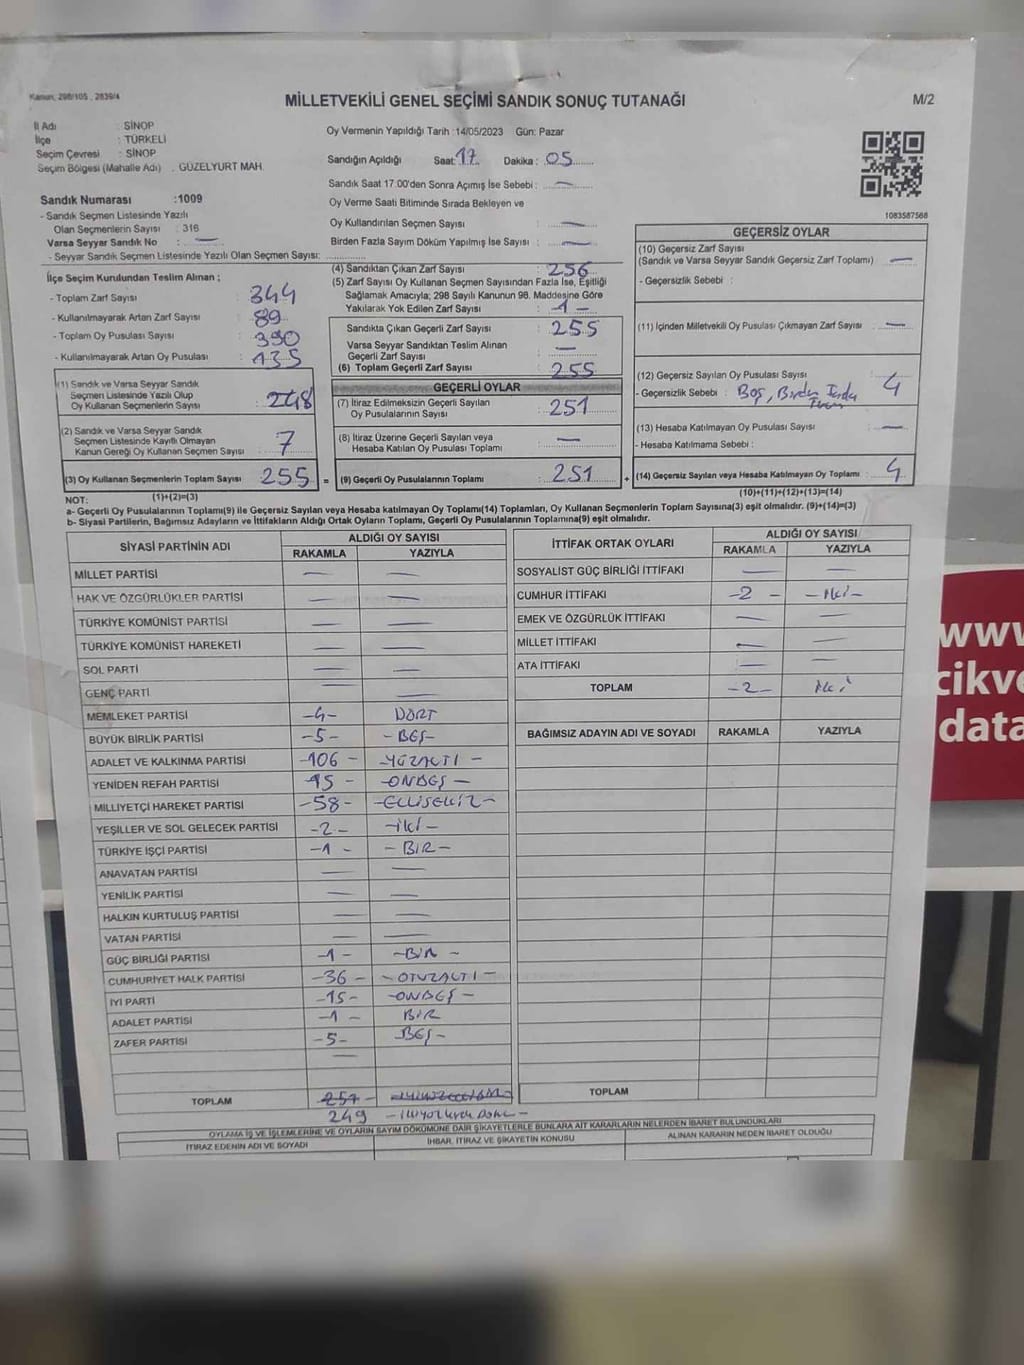 Kanun, 298/105 , 2839/4
MİLLETVEKİLİ GENEL SEÇİMİ SANDIK SONUÇ TUTANAĞI
M/2
İl Adı : SİNOP
İlçe : TÜRKELİ
Seçim Çevresi : SİNOP
Seçim Bölgesi (Mahalle Adı) : GÜZELYURT MAH.
Sandık Numarası :1009
- Sandık Seçmen Listesinde Yazılı
Olan Seçmenlerin Sayısı : 316
Varsa Seyyar Sandık No : —
- Seyyar Sandık Seçmen Listesinde Yazılı Olan Seçmen Sayısı:
Oy Vermenin Yapıldığı Tarih :14/05/2023 Gün: Pazar
Sandığın Açıldığı Saat: 17 Dakika : 05
Sandık Saat 17.00'den Sonra Açımış İse Sebebi : —
Oy Verme Saati Bitiminde Sırada Bekleyen ve
Oy Kullandırılan Seçmen Sayısı : —
Birden Fazla Sayım Döküm Yapılmış İse Sayısı : —
1083587568
İlçe Seçim Kurulundan Teslim Alınan ;
- Toplam Zarf Sayısı : 344
- Kullanılmayarak Artan Zarf Sayısı : 89
- Toplam Oy Pusulası Sayısı : 390
- Kullanılmayarak Artan Oy Pusulası : 135
(1) Sandık ve Varsa Seyyar Sandık
Seçmen Listesinde Yazılı Olup
Oy Kullanan Seçmenlerin Sayısı : 248
(2) Sandık ve Varsa Seyyar Sandık
Seçmen Listesinde Kayıtlı Olmayan
Kanun Gereği Oy Kullanan Seçmen Sayısı : 7
(3) Oy Kullanan Seçmenlerin Toplam Sayısı : 255 =
(4) Sandıktan Çıkan Zarf Sayısı : 256
(5) Zarf Sayısı Oy Kullanan Seçmen Sayısından Fazla İse, Eşitliği
Sağlamak Amacıyla; 298 Sayılı Kanunun 98. Maddesine Göre
Yakılarak Yok Edilen Zarf Sayısı : 1 -
Sandıkta Çıkan Geçerli Zarf Sayısı : 255
Varsa Seyyar Sandıktan Teslim Alınan
Geçerli Zarf Sayısı : —
(6) Toplam Geçerli Zarf Sayısı : 255
GEÇERLİ OYLAR
(7) İtiraz Edilmeksizin Geçerli Sayılan
Oy Pusulalarının Sayısı : 251
(8) İtiraz Üzerine Geçerli Sayılan veya
Hesaba Katılan Oy Pusulası Toplamı : —
(9) Geçerli Oy Pusulalarının Toplamı : 251 +
GEÇERSİZ OYLAR
(10) Geçersiz Zarf Sayısı
(Sandık ve Varsa Seyyar Sandık Geçersiz Zarf Toplamı) : —
- Geçersizlik Sebebi :
(11) İçinden Milletvekili Oy Pusulası Çıkmayan Zarf Sayısı : —
(12) Geçersiz Sayılan Oy Pusulası Sayısı : 4
- Geçersizlik Sebebi : Boş,
(13) Hesaba Katılmayan Oy Pusulası Sayısı : —
- Hesaba Katılmama Sebebi :
(14) Geçersiz Sayılan veya Hesaba Katılmayan Oy Toplamı : 4
NOT: (1)+(2)=(3) (10)+(11)+(12)+(13)=(14)
a- Geçerli Oy Pusulalarının Toplamı(9) ile Geçersiz Sayılan veya Hesaba katılmayan Oy Toplamı(14) Toplamları, Oy Kullanan Seçmenlerin Toplam Sayısına(3) eşit olmalıdır. (9)+(14)=(3)
b- Siyasi Partilerin, Bağımsız Adayların ve İttifakların Aldığı Ortak Oyların Toplamı, Geçerli Oy Pusulalarının Toplamına(9) eşit olmalıdır.
SİYASİ PARTİNİN ADI ALDIĞI OY SAYISI
RAKAMLA YAZIYLA
MİLLET PARTİSİ — —
HAK VE ÖZGÜRLÜKLER PARTİSİ — —
TÜRKİYE KOMÜNİST PARTİSİ — —
TÜRKİYE KOMÜNİST HAREKETİ — —
SOL PARTİ — —
GENÇ PARTİ — —
MEMLEKET PARTİSİ -4- DÖRT
BÜYÜK BİRLİK PARTİSİ -5- -BEŞ-
ADALET VE KALKINMA PARTİSİ -106- -YÜZALTI-
YENİDEN REFAH PARTİSİ 15- -ONBEŞ-
MİLLİYETÇİ HAREKET PARTİSİ -58- -ELLİSEKİZ-
YEŞİLLER VE SOL GELECEK PARTİSİ -2- -İKİ-
TÜRKİYE İŞÇİ PARTİSİ -1- -BİR-
ANAVATAN PARTİSİ — —
YENİLİK PARTİSİ — —
HALKIN KURTULUŞ PARTİSİ — —
VATAN PARTİSİ — —
GÜÇ BİRLİĞİ PARTİSİ -1- -BİR-
CUMHURİYET HALK PARTİSİ -36- -OTUZALTI-
İYİ PARTİ -15- -ONBEŞ-
ADALET PARTİSİ -1- BİR
ZAFER PARTİSİ -5- -BEŞ-
—
TOPLAM 251-
249
İTTİFAK ORTAK OYLARI ALDIĞI OY SAYISI
RAKAMLA YAZIYLA
SOSYALİST GÜÇ BİRLİĞİ İTTİFAKI — —
CUMHUR İTTİFAKI -2- -İki-
EMEK VE ÖZGÜRLÜK İTTİFAKI — —
MİLLET İTTİFAKI — —
ATA İTTİFAKI — —
TOPLAM -2- İki
BAĞIMSIZ ADAYIN ADI VE SOYADI RAKAMLA YAZIYLA
TOPLAM
OYLAMA İŞ VE İŞLEMLERİNE VE OYLARIN SAYIM DÖKÜMÜNE DAİR ŞİKAYETLERLE BUNLARA AİT KARARLARIN NELERDEN İBARET BULUNDUKLARI
İTİRAZ EDENİN ADI VE SOYADI İHBAR, İTİRAZ VE ŞİKAYETİN KONUSU ALINAN KARARIN NEDEN İBARET OLDUĞU
www
cikve
data